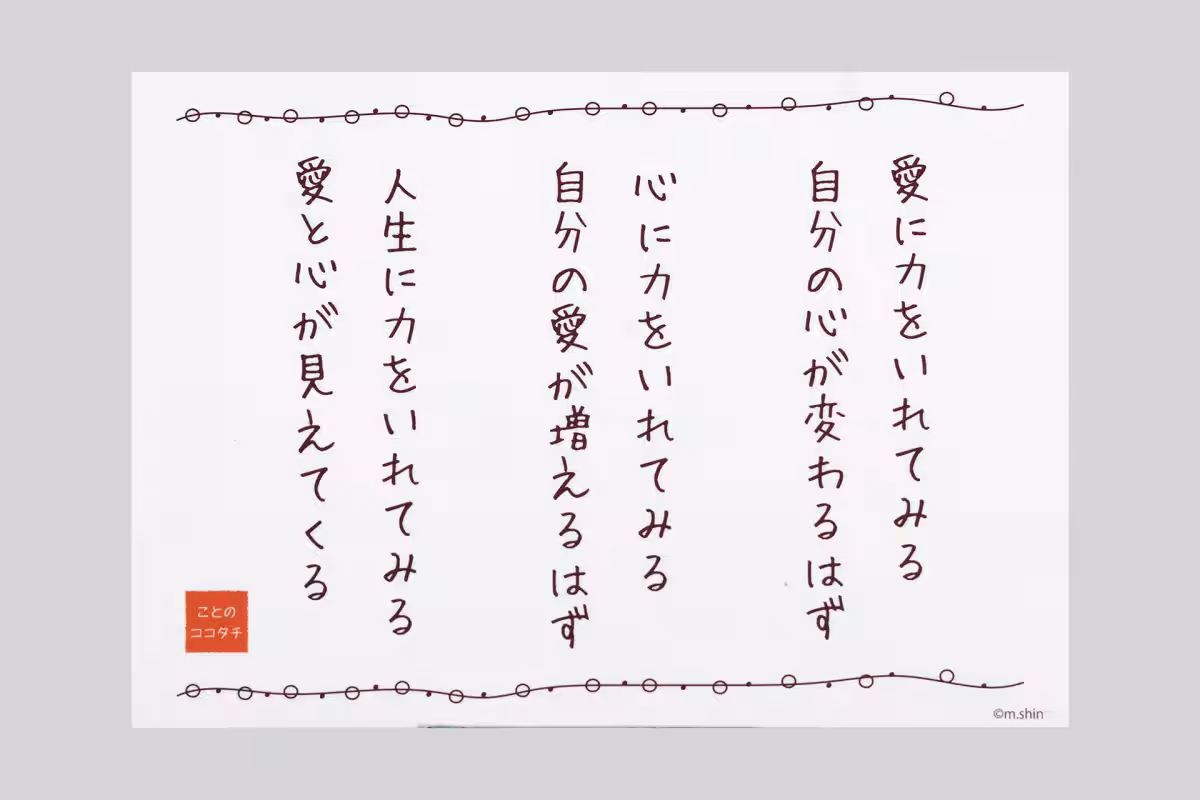 愛に力をいれてみる
自分の心が変わるはず
心に力をいれてみる
自分の愛が増えるはず
人生に力をいれてみる
愛と心が見えてくる
ことの
ココダチ
©m.shin